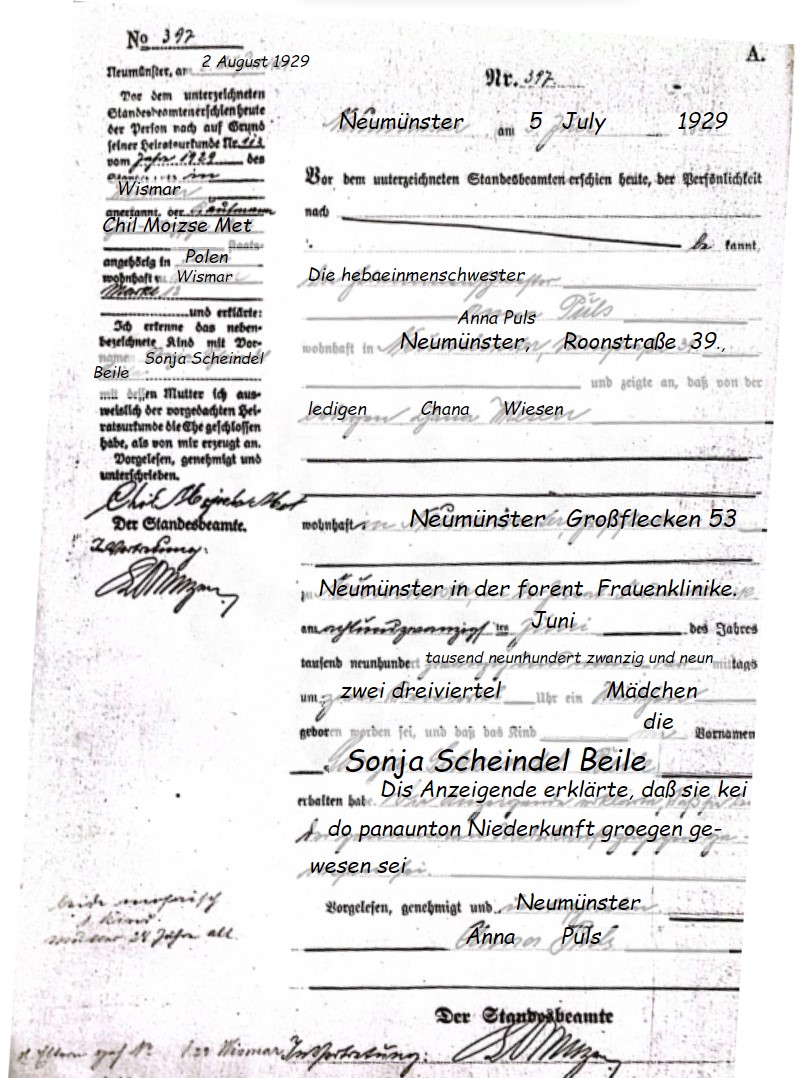 No 397
Neumünster, am 2 August 1929
Vor dem unterzeichneten
Standesbeamten erschien heute
der Person nach auf Grund
seiner Heiratsurkunde Nr. 113
vom Jahr 1929 des
in
Wismar
anerkannt, der Kaufmann
Chil Moizse Met
Staats-
angehörig in Polen
wohnhaft Wismar
und erklärte:
Ich erkenne das neben-
bezeichnete Kind mit Vor-
name Sonja Scheindel
Beile
mit dessen Mutter ich aus-
weislich der vorgedachten Hei-
ratsurkunde die Ehe geschlossen
habe, als von mir erzeugt an.
Vorgelesen, genehmigt und
unterschrieben.
Der Standesbeamte.
In Vertretung:
beide mosaisch
1 Kind
Mutter 24 Jahre alt
A.
Nr. 397.
Neumünster am 5 July 1929
Vor dem unterzeichneten Standesbeamten erschien heute, der Persönlichkeit
nach
be kannt,
Die hebaeinmenschwester
Anna Puls
wohnhaft in Neumünster, Roonstraße 39.,
und zeigte an, daß von der
ledigen Chana Wiesen
wohnhaft in Neumünster Großflecken 53
Neumünster in der forent Frauenklinike.
am achtundzwanzigsten Juni des Jahres
tausend neunhundert tausend neunhundert zwanzig und neun mittags
um zwei dreiviertel Uhr ein Mädchen
geboren worden sei, und daß das Kind die Vornamen
Sonja Scheindel Beile
erhalten habe. Dis Anzeigende erklärte, daß sie kei
do panaunton Niederkunft groegen ge-
wesen sei
Vorgelesen, genehmigt und Neumünster
Anna Puls
Der Standesbeamte
In Vertretung:
Wismar